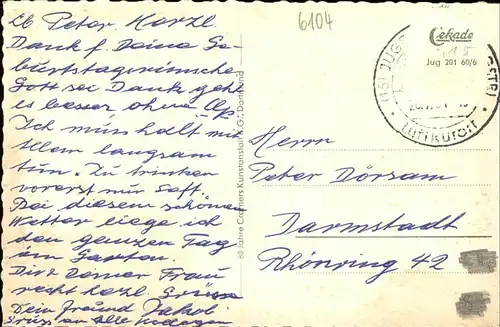 Lb Peter. Herzl.
Dank f. Deine Ge-
burtstagswünsche
Gott sei Dank geht
es besser ohne Op.
Ich muss halt mit
Allem langsam
tun. Zu trinken
vorerst nur Saft.
Bei diesem schönen
Wetter liege ich
den ganzen Tag
im Garten.
Dir & Deiner Frau
recht herzl. Grüsse
Dein Freund Jakob
Gruss an alle
60 Jahre Cramers Kunstanstalt K.G., Dortmund
6104
Cekade
Jug 201 60/6
Luftkurort
Herrn
Peter Dörsam
Darmstadt
Rhönring 42